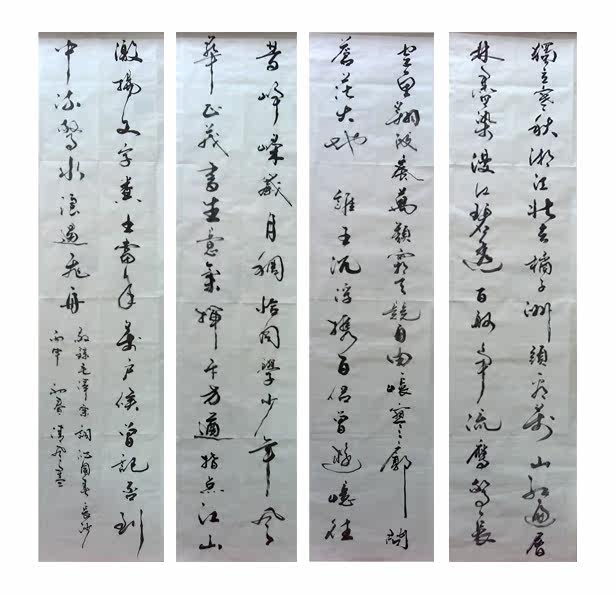 獨立寒秋湘江北去橘子洲頭看萬山紅遍層
林盡染漫江碧透百舸爭流鷹擊長
空魚翔淺底萬類霜天競自由悵寥廓問
蒼茫大地誰主沉浮攜百侶曾遊憶往
昔崢嶸歲月稠恰同學少年風
華正茂書生意氣揮斥方遒指点江山
激揚文字糞土當年萬戶侯曾記否到
中流擊水浪遏飛舟
敬錄毛澤東詞沁園春長沙
丙申初春